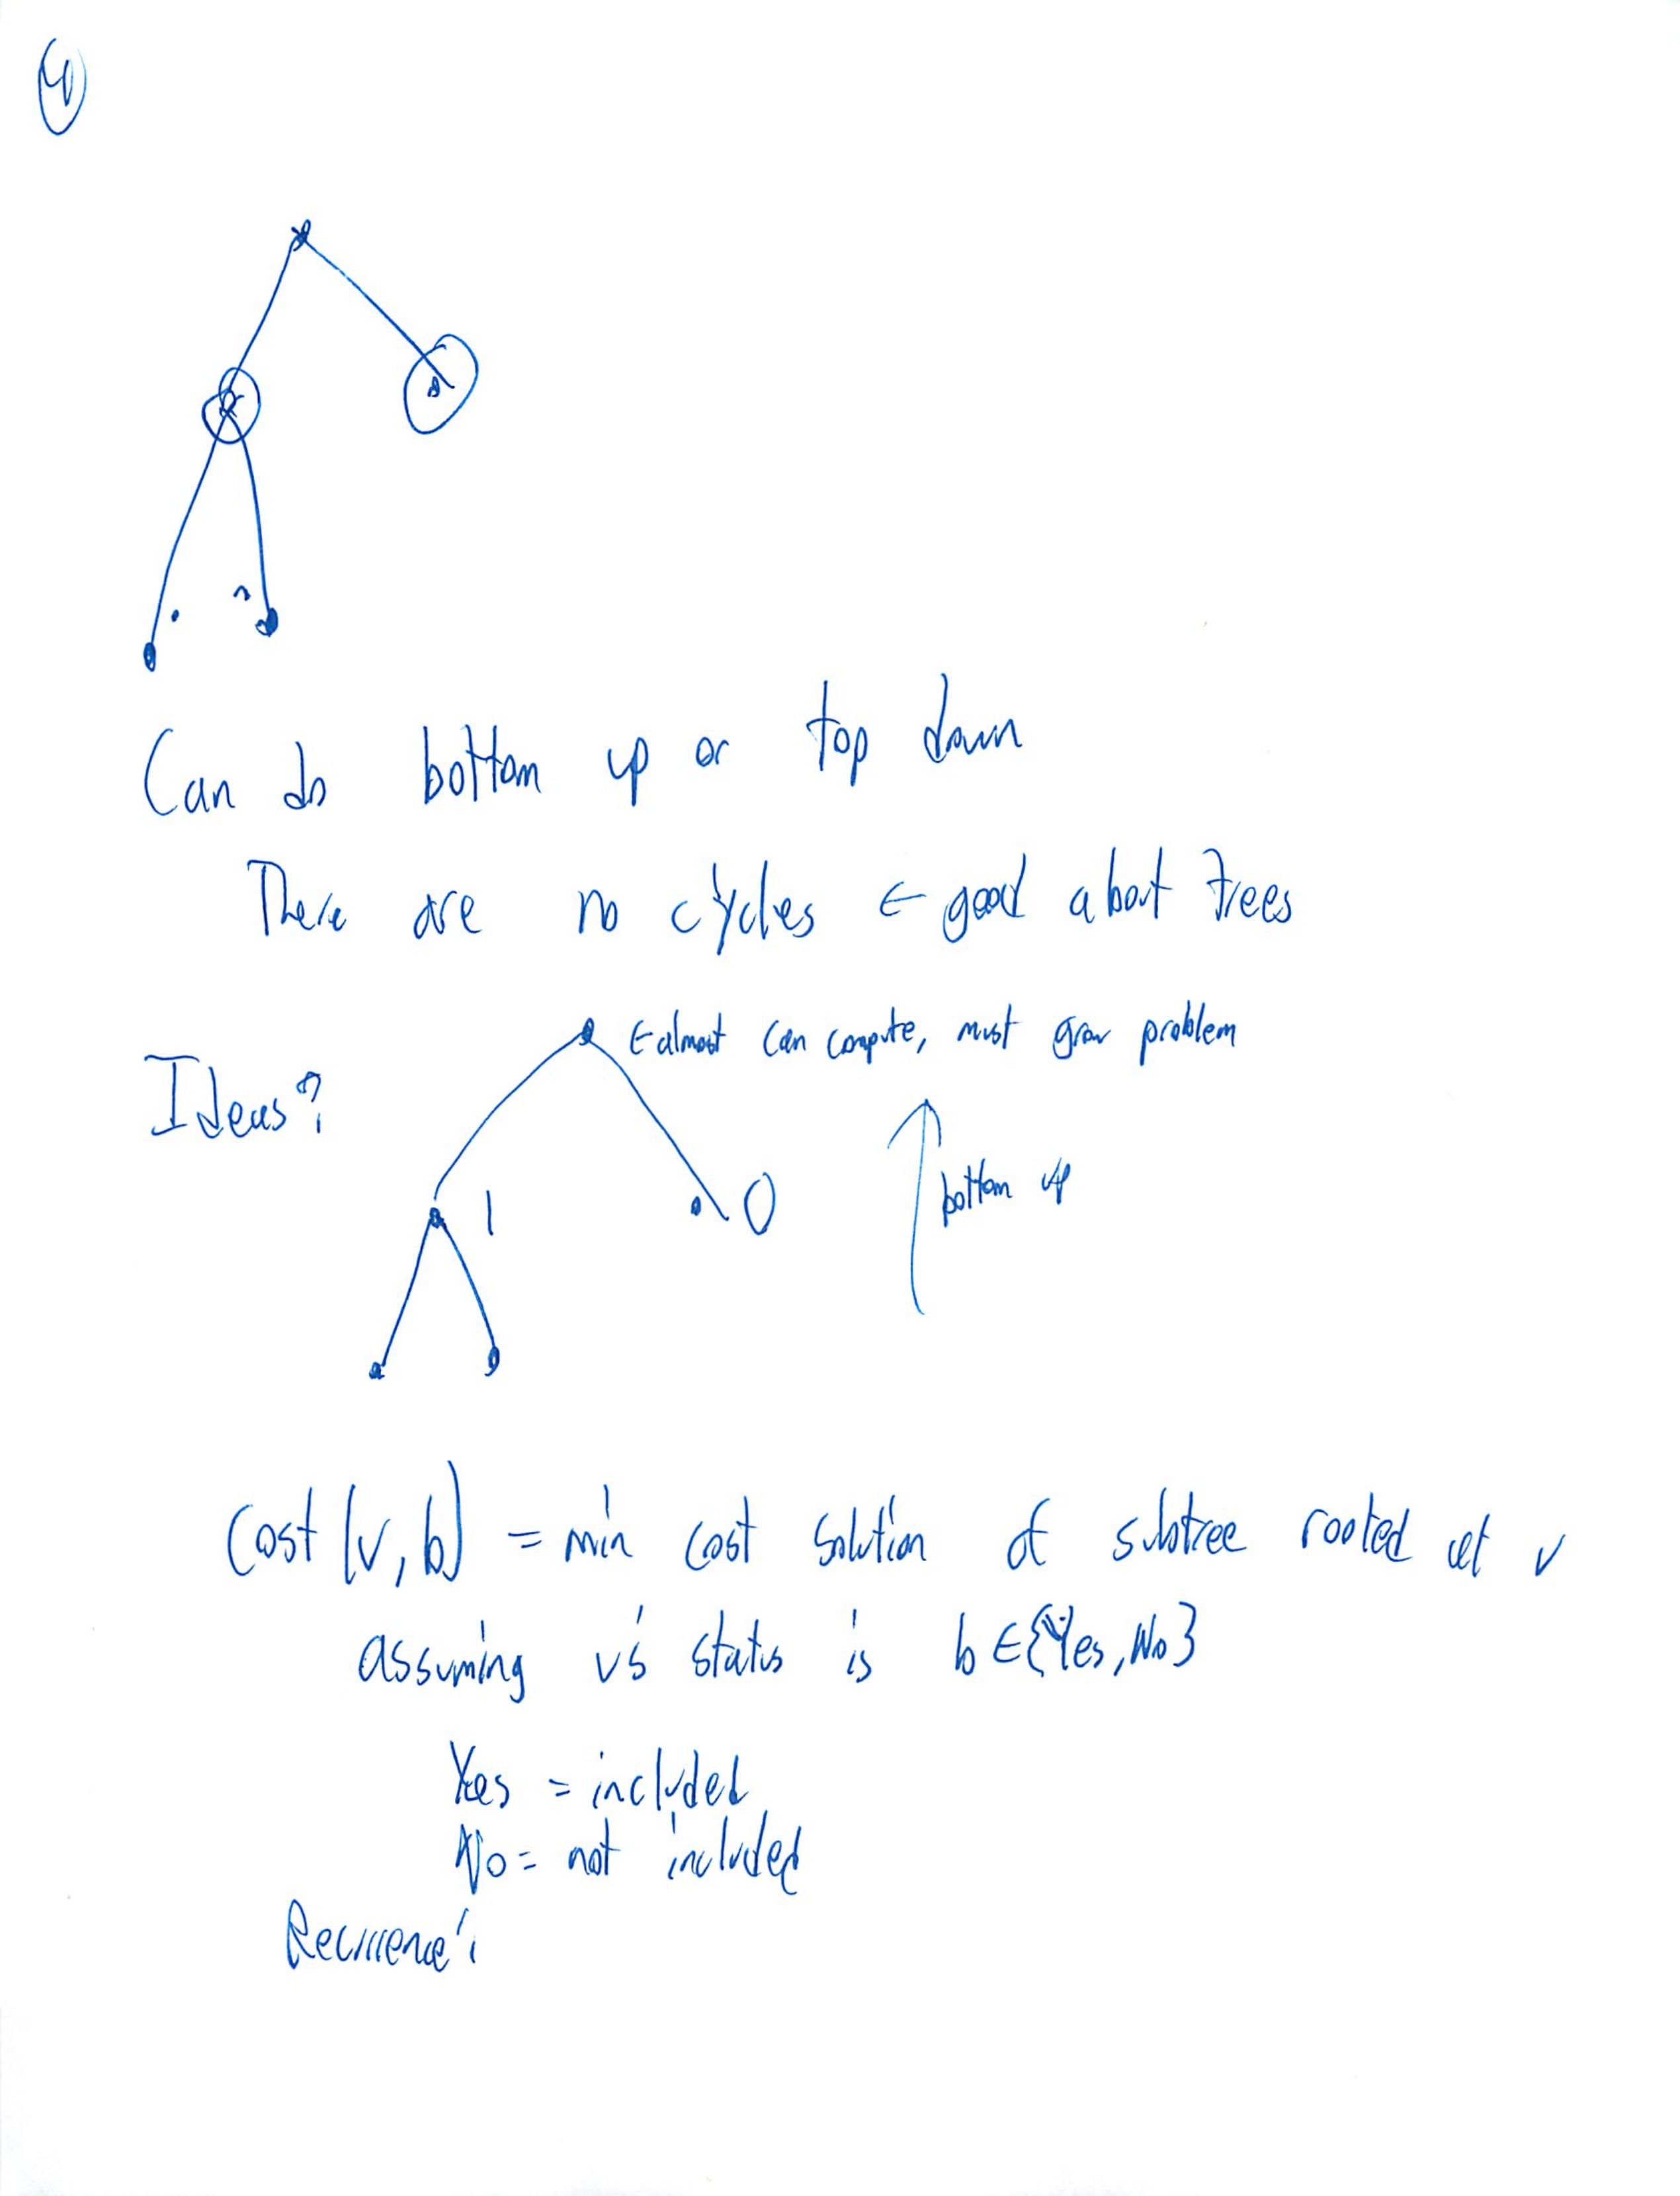 4
Can do bottom up or top down
There are no cycles ← good about trees
← almost can compute, must grow problem
Ideas?
1
0
bottom up
Cost(v,b) = min cost solution of subtree rooted at v
assuming v's status is b ∈ {Yes, No}
Yes = included
No = not included
Recurrence: